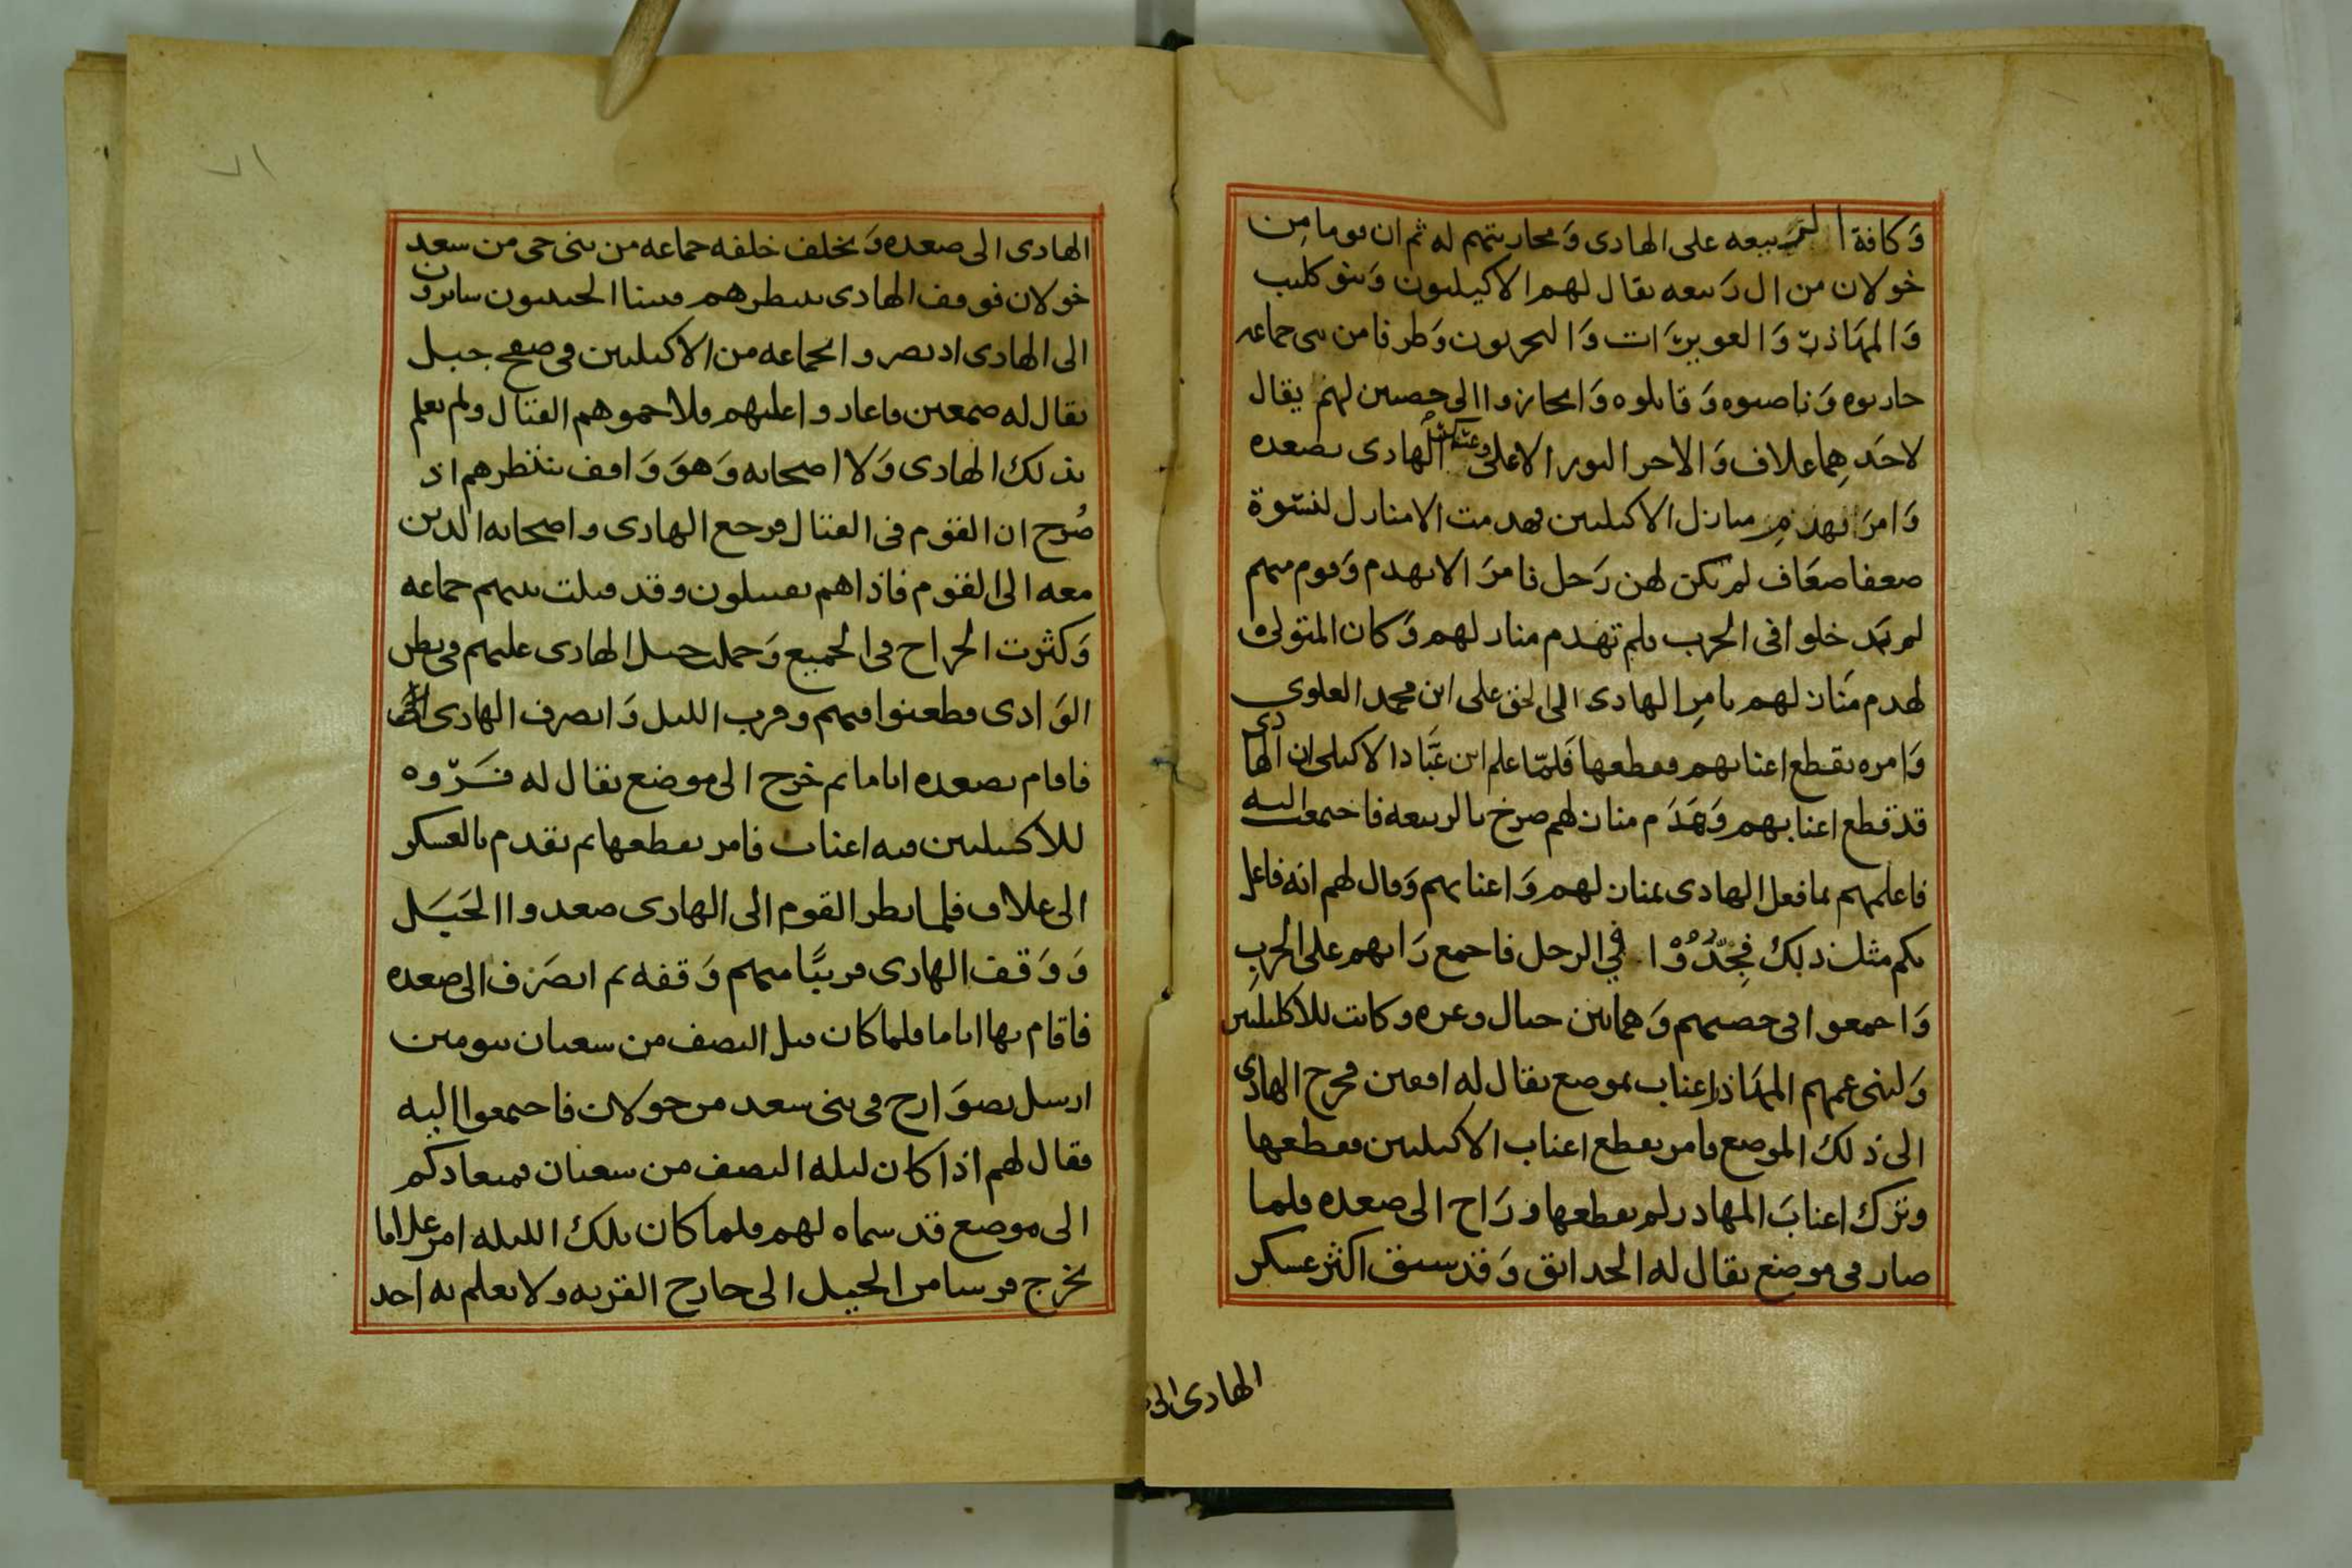 وَكافة الربيعه على الهادى وَمحاربتهم له ثم ان قوما مِن
خولان من ال رَبيعه يقال لهم الاكيليون وَبنو كليب
وَالمهَاذر وَالعويرَات وَالبحريون وَطرفا من بنى جماعه
حاربوه وَناصبوه وَقاتلوه وَانحازوا الى حصنين لهم يقال
لاحَدهِما علاف وَالاخر الاعلى وعسكر الهادى بصعده
وَامرَ بهدم منازل الاكيليين فهدمت الا منازل لنسوة
ضعفا ضعَاف لم يكن لهن رَجل فامرَ الا يهدم وَقوم منهم
لم يَدخلوا فى الحرب فلم تهدم منازلهم وَكان المتولى
لهدم مَنازلهم بامرِ الهادى الى الحق على ابن محمد العلوى
وَامره بقطع اعنابهم فقطعها فَلمّا علم ابن عَبَّاد الاكيلى ان الهادى
قد قطع اعنابهم وَهَدَم منازلهم صرخ بالربيعه فاجتمعت اليه
فاعلمهم بما فعل الهادى بمنازلهم وَاعنابهم وَقال لهم انه فاعل
بكم مثل ذلك فَجِدُّوْا فِي الرحل فاجمع رَايهم على الحربِ
وَاجمعوا فى حصنيهم وَهما بين جبال وعره وكانت للاكيليين
وَلبنى عمهم المهَاذر اعناب بموضع يقال له افعين فخرج الهادى
الى ذلك الموضع فامر بقطع اعناب الاكيليين فقطعها
وترك اعنابَ المهاذر لم يقطعها وَرَاح الى صعده فلما
صار فى موضع يقال له الحدائق وَقد سبق اكثر عسكر
الهادى الى
٧١
الهادى الى صعده وَتخلف خلفه جماعه من بنى حى من سعد
خولان فوقف الهادى ينتظرهم فبينا الحييون سائرون
الى الهادى اذ بصروا بجماعه من الاكيليين فى صفح جبل
يقال له صمعين فاغاروا عليهم فلاحموهم القتال ولم يعلم
بذلك الهادى وَلا اصحابه وَهوَ وَاقف ينتظرهم اذ
صُرح ان القوم فى القتال فرجع الهادى واصحابه الذين
معه الى القوم فاذا هم يقتتلون وقد قتلت بينهم جماعه
وَكثرت الجراح فى الجميع وَحملت خيل الهادى عليهم فى بطن
الوَادى فطعنوا فيهم وقرب الليل وَانصرف الهادى
فاقام بصعده اياما ثم خرج الى موضع يقال له فَرَوه
للاكيليين فيه اعناب فامر بقطعها ثم تقدم بالعسكر
الى علاف فلما نظر القوم الى الهادى صعدوا الجَبَل
وَوَقف الهادى قريبًا منهم وَقفه ثم انصَرَف الى صعده
فاقام بها اياما فلما كان قبل النصف من شعبان بيومين
ارسل بصوَارخ فى بنى سعد من خولان فاجتمعوا اليه
فقال لهم اذا كان ليله النصف من شعبان فميعادكم
الى موضع قد سماه لهم فلما كان تلك الليله امر غلاما
يخرج فرسا من الخيل الى خارج القريه ولا يعلم به احد